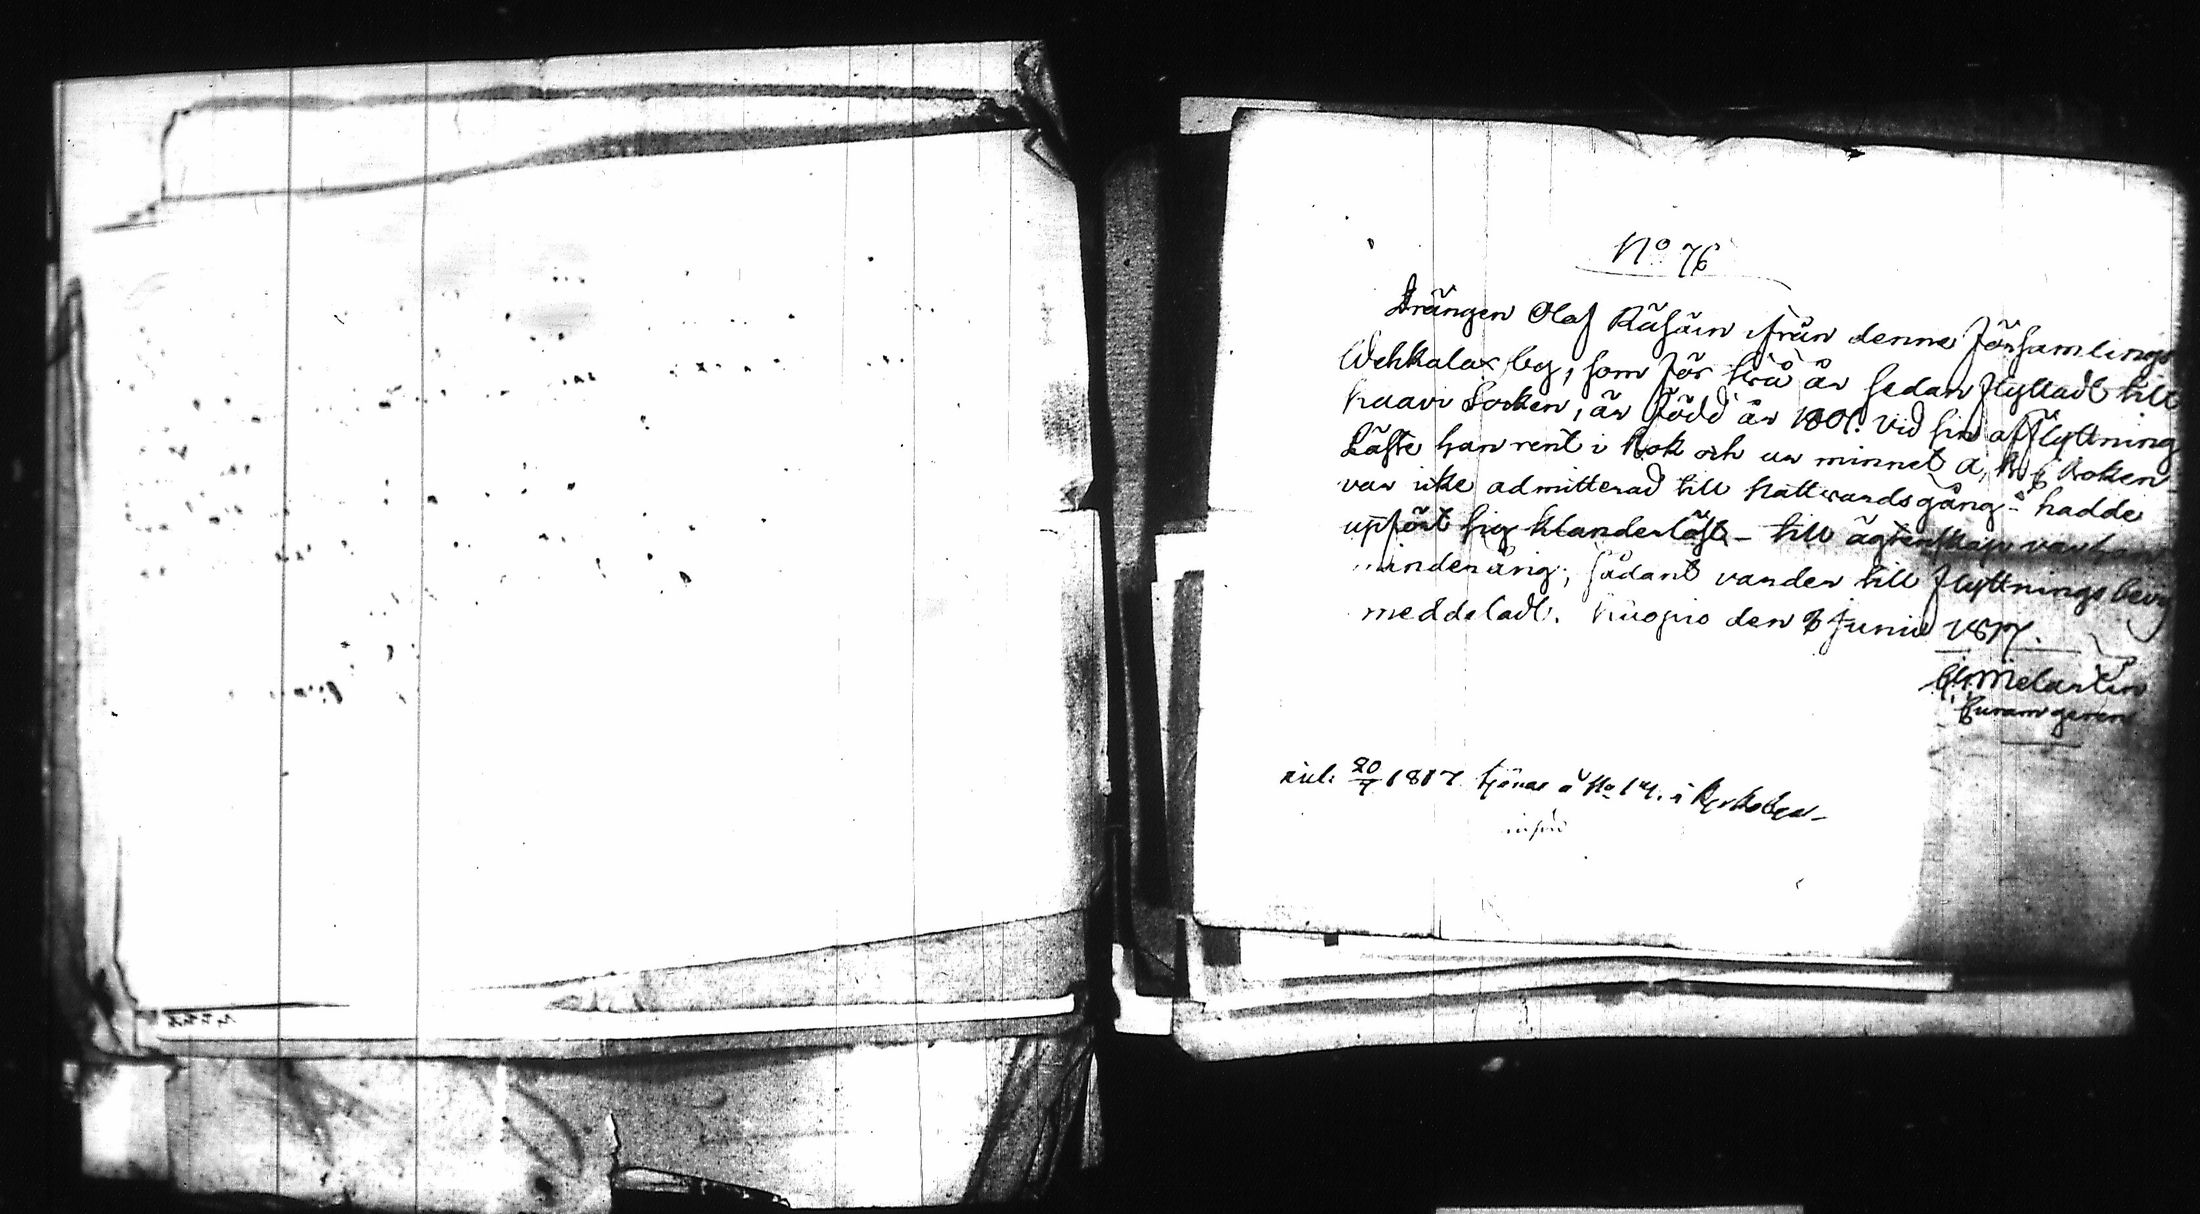 No 76
Drängen Olaf Räsäin ifrån denne församlings
Wehkalax by, som för två år sedan flyttadt till
Kaavi Socken, är född år 1801. vid sin afflyttning
Läste han rent i Bok och ur minnet A, B, C Boken
var icke admitterad till Nattvardsgång - hadde
uppfört sig klanderlöst - till ägtenskap var han
minderårig; sådant varder till flyttnings bevis
meddeladt. Kuopio den 6 Junii 1817.
Melartin
20/7 1817 tjenar å No 14. i Kyrkobyn